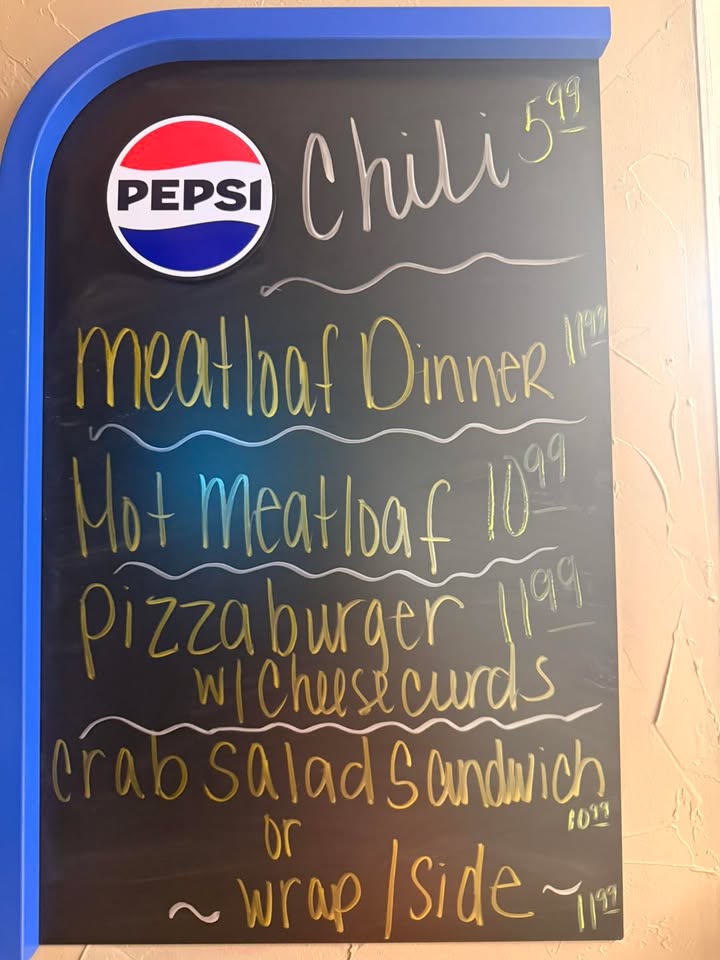 PEPSI
Chili 5.99
Meatloaf Dinner 11.99
Hot Meatloaf 10.99
Pizzaburger 11.99
w/ Cheese curds
Crab Salad Sandwich
10.99
or
~ wrap / side ~ 11.99